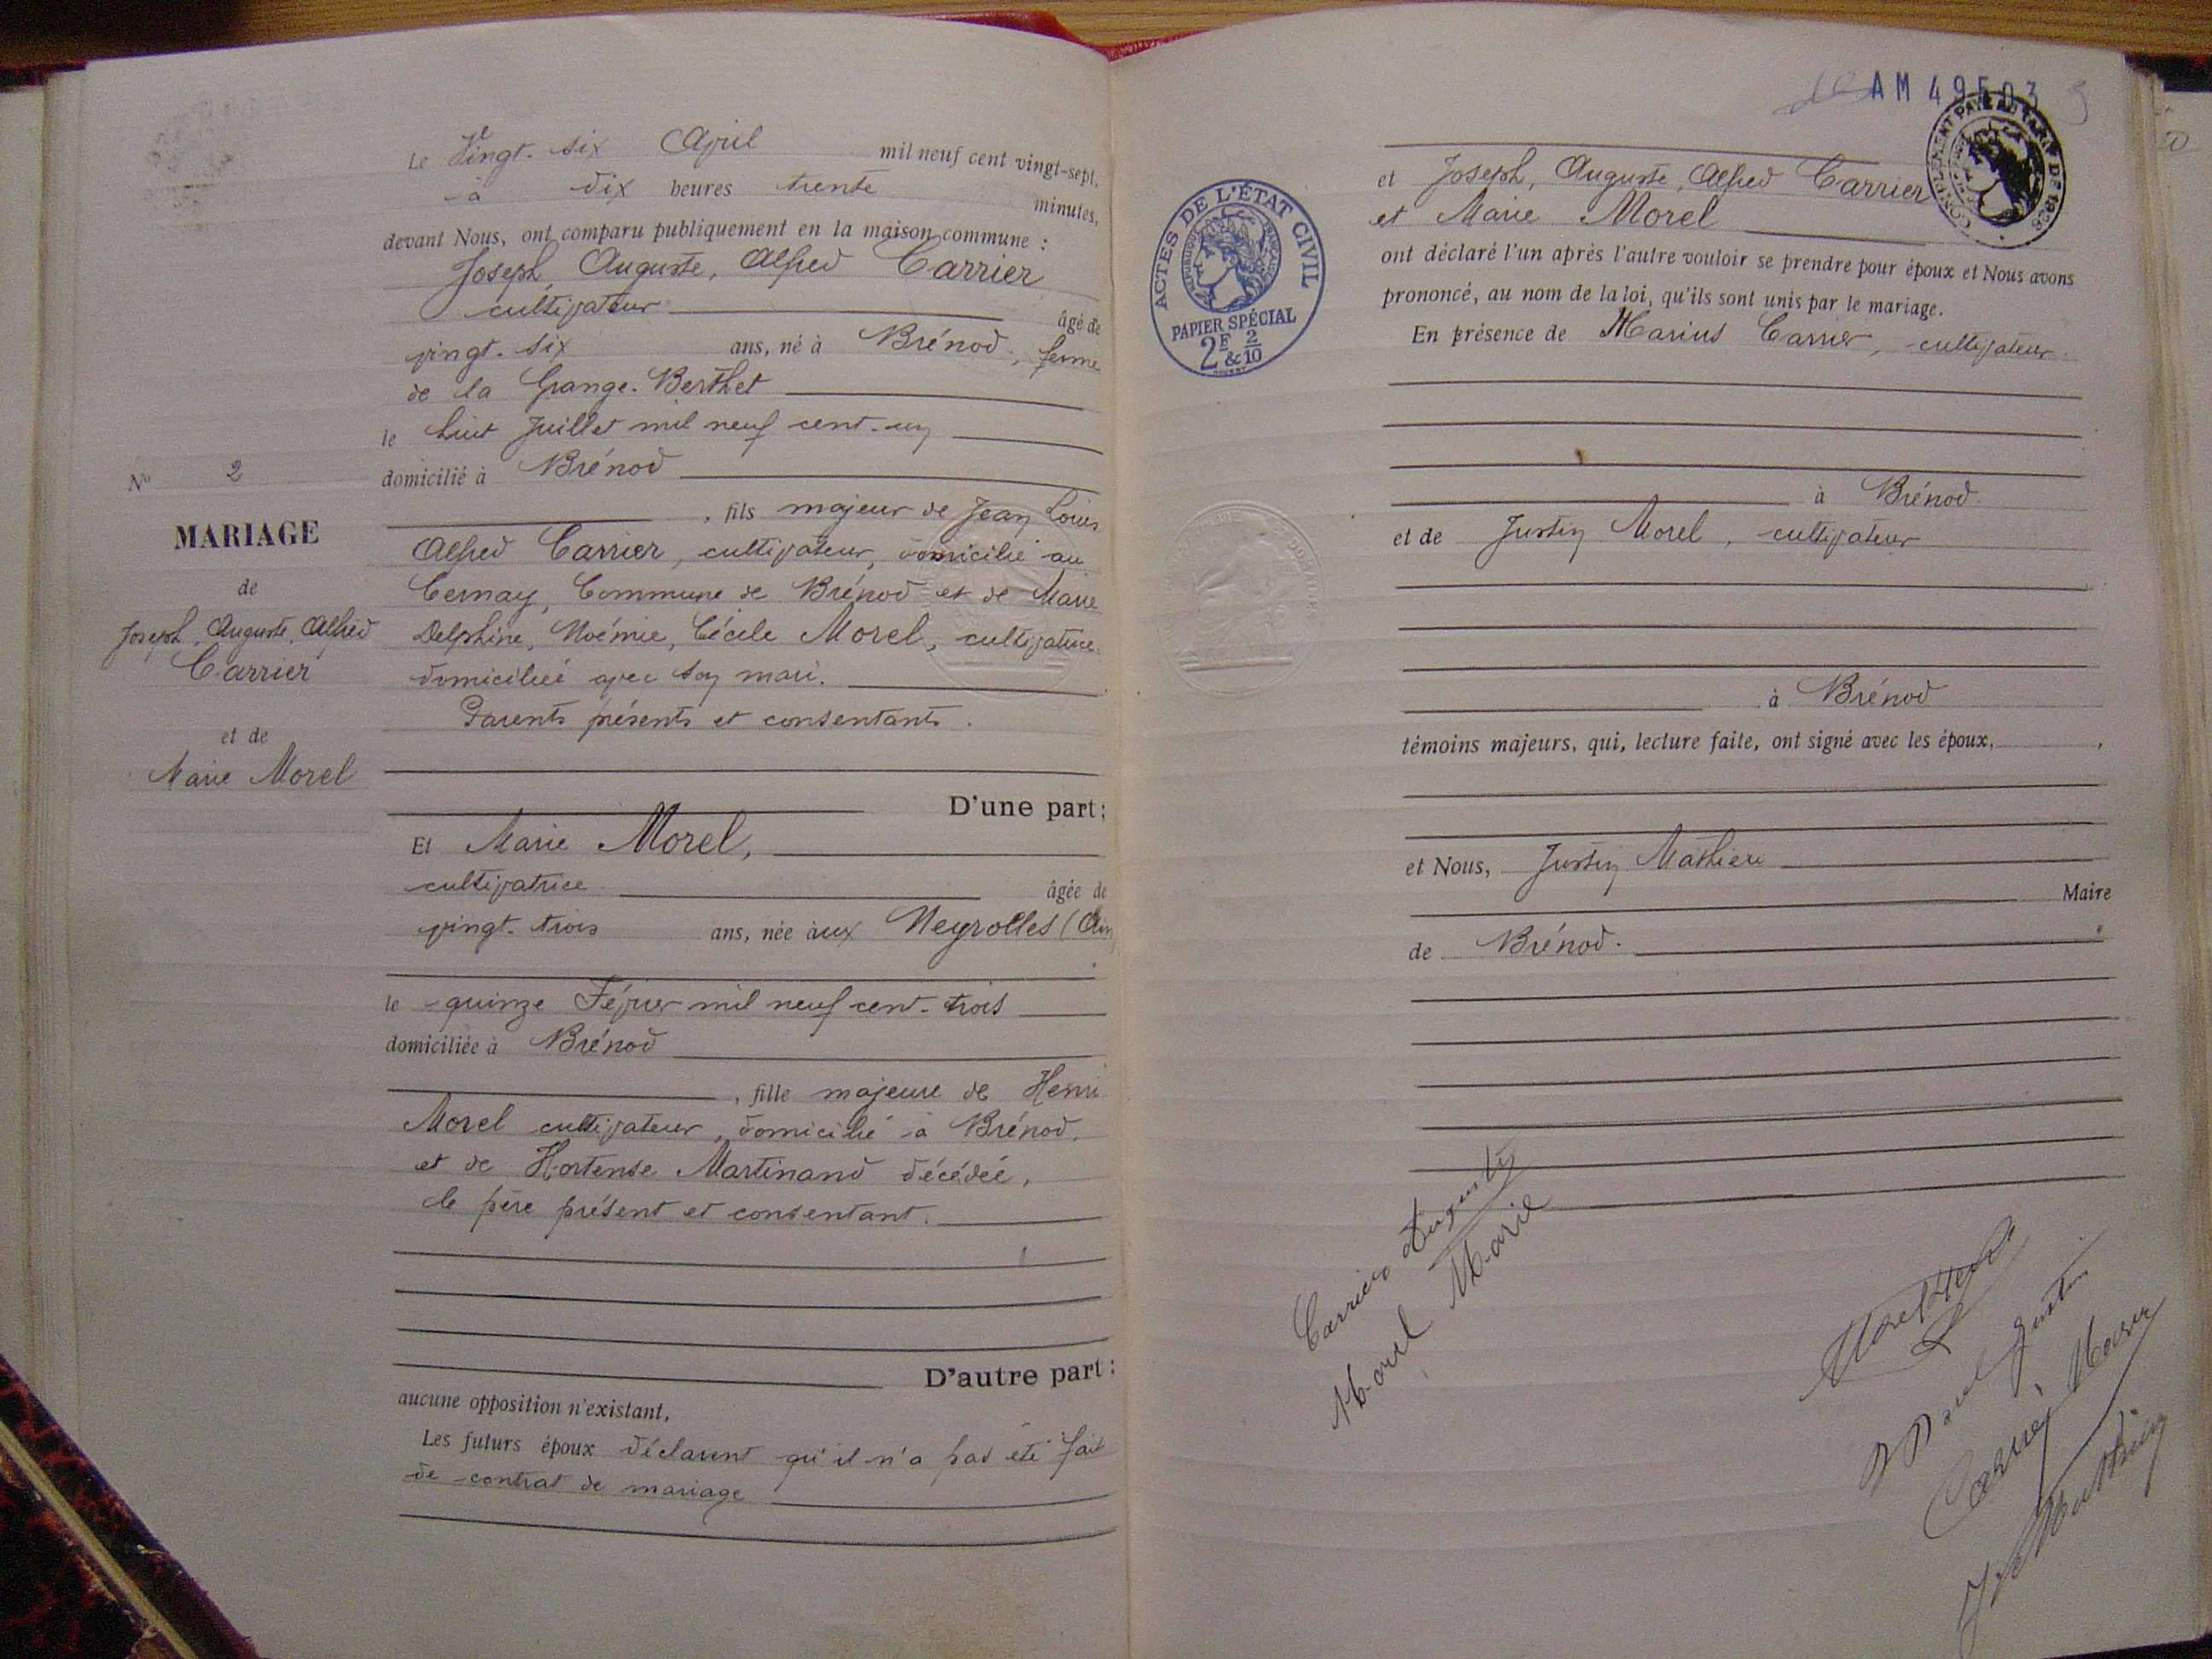 Le Vingt-six Avril mil neuf cent vingt-sept,
à dix heures trente minutes,
devant Nous, ont comparu publiquement en la maison commune :
Joseph, Auguste, Alfred Carrier
cultivateur âgé de
vingt-six ans, né à Brénod, ferme
de la Grange-Berthet
le huit Juillet mil neuf cent-un
domicilié à Brénod
, fils majeur de Jean Louis
Alfred Carrier, cultivateur, domicilié au
Cernay, Commune de Brénod et de Marie
Delphine, Noémie, Cécile Morel, cultivatrice
domiciliée avec son mari.
Parents présents et consentants.
D'une part ;
No 2
MARIAGE
de
Joseph, Auguste, Alfred
Carrier
et de
Marie Morel
Et Marie Morel,
cultivatrice âgée de
vingt-trois ans, née aux Neyrolles (Ain
le quinze Février mil neuf cent-trois
domiciliée à Brénod
, fille majeure de Henri
Morel cultivateur, domicilié à Brénod,
et de Hortense Martinand décédée,
le père présent et consentant.
D'autre part :
aucune opposition n'existant,
Les futurs époux déclarent qu'il n'a pas été fait
de contrat de mariage
ACTES DE L'ÉTAT CIVIL
PAPIER SPÉCIAL
2F & 2/10
et Joseph, Auguste, Alfred Carrier
et Marie Morel
ont déclaré l'un après l'autre vouloir se prendre pour époux et Nous avons
prononcé, au nom de la loi, qu'ils sont unis par le mariage.
En présence de Marius Carrier, cultivateur
à Brénod
et de Justin Morel, cultivateur
à Brénod
témoins majeurs, qui, lecture faite, ont signé avec les époux,
et Nous, Justin Mathieu
Maire
de Brénod.
Carrier Auguste
Morel Marie
Morel Henri
Morel Justin
Carrier Marius